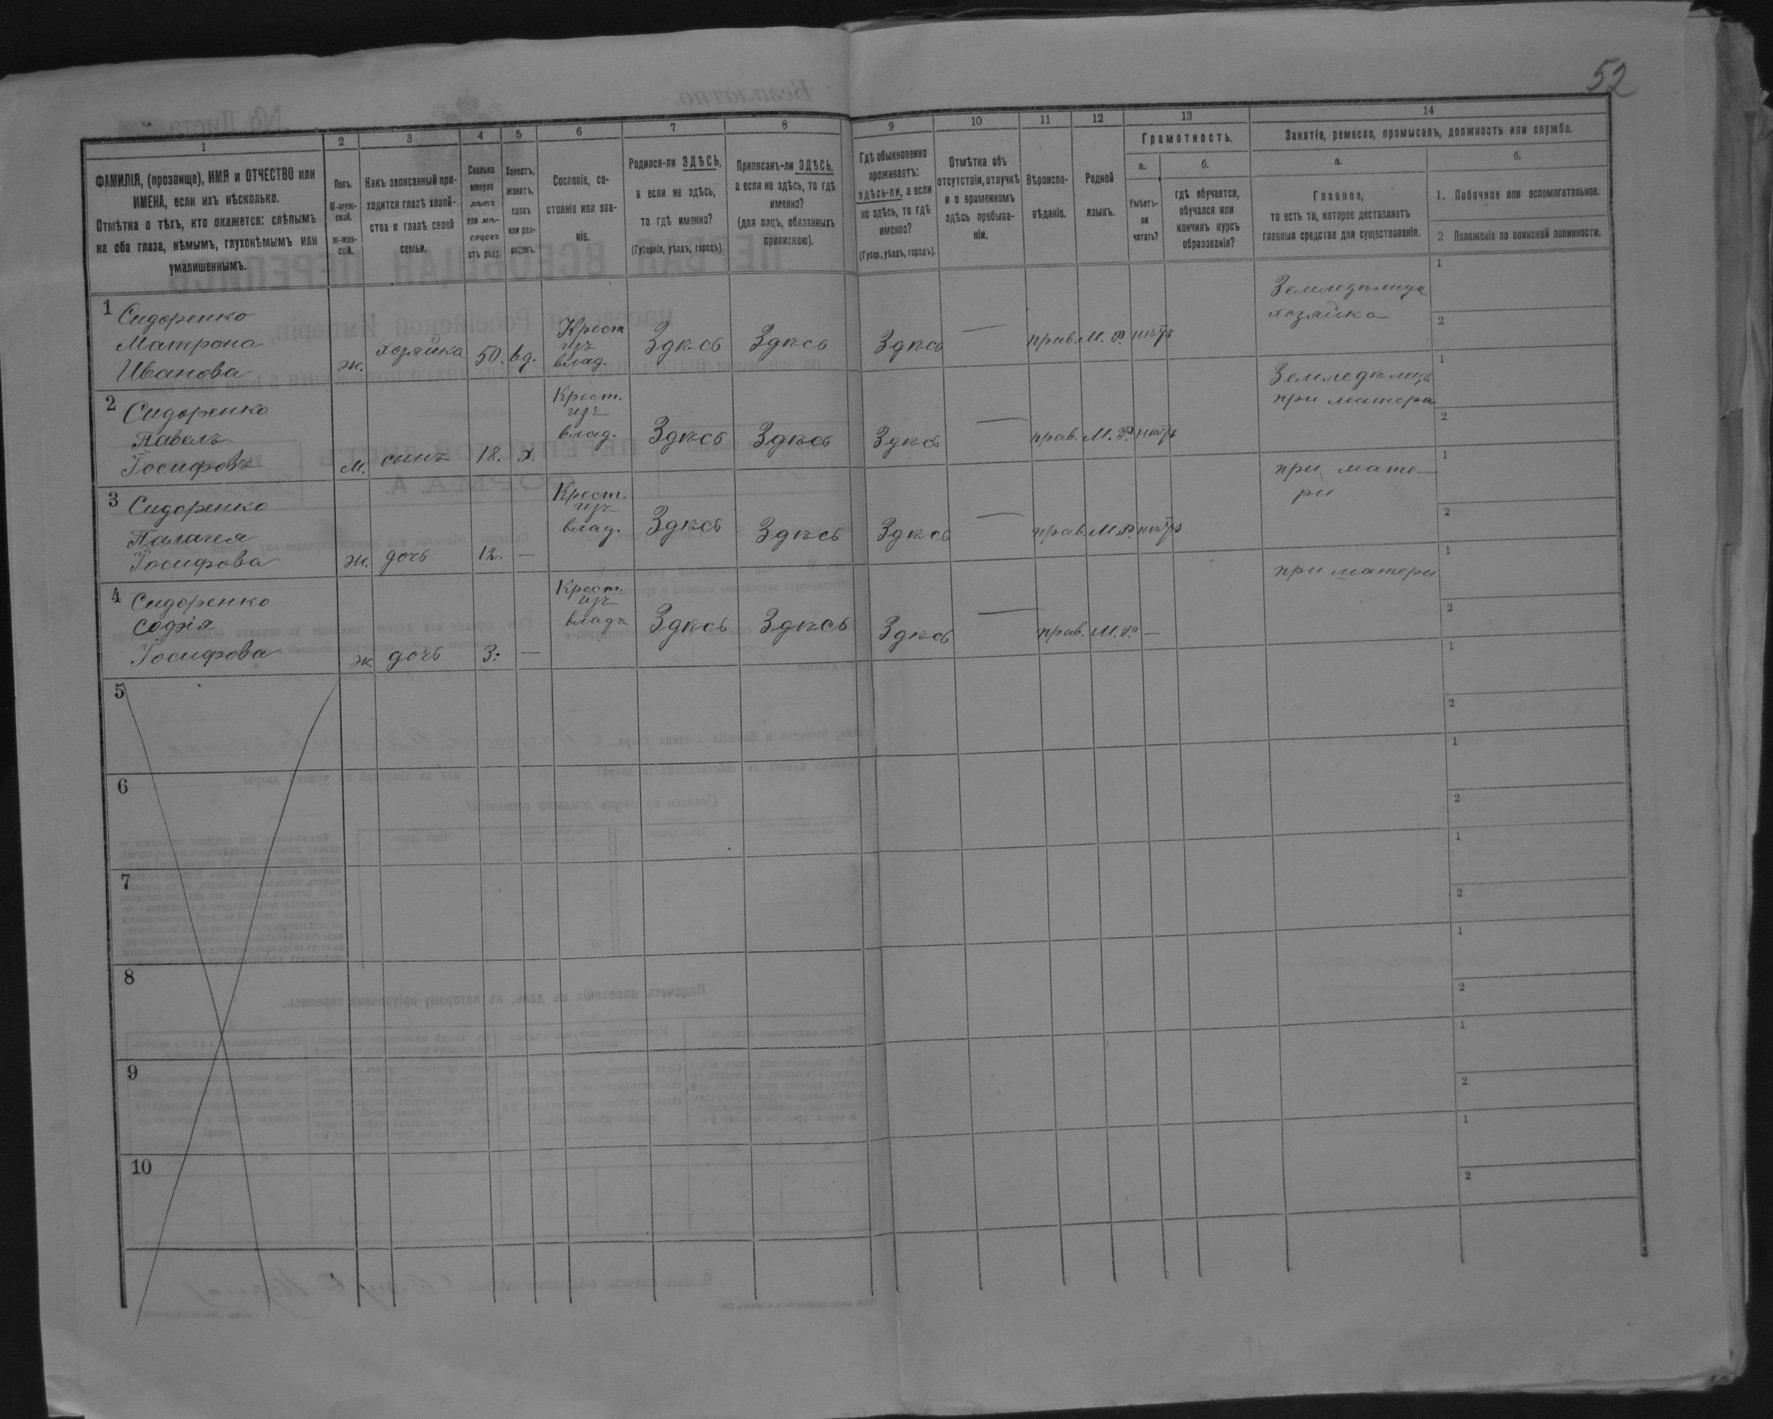 52
1
2
3
4
5
6
7
8
9
10
11
12
13
14
ФАМИЛІЯ, (прозвище), ИМЯ и ОТЧЕСТВО или
ИМЕНА, если ихъ нѣсколько.
Отмѣтка о тѣхъ, кто окажется: слѣпымъ
на оба глаза, нѣмымъ, глухонѣмымъ или
умалишеннымъ.
Полъ.
М-муж-
ской.
ж-жен-
скій.
Какъ записанный при-
ходится главѣ хозяй-
ства и главѣ своей
семьи.
Сколько
минуло
лѣтъ
или мѣ-
сяцевъ
отъ роду.
Холостъ,
женатъ,
вдовъ
или раз-
веденъ.
Сословіе, со-
стояніе или зва-
ніе.
Родился-ли ЗДѢСЬ,
а если не здѣсь,
то гдѣ именно?
(Губернія, уѣздъ, городъ).
Приписанъ-ли ЗДѢСЬ,
а если не здѣсь, то гдѣ
именно?
(для лицъ, обязанныхъ
припискою).
Гдѣ обыкновенно
проживаетъ:
здѣсь-ли, а если
не здѣсь, то гдѣ
именно?
(Губер., уѣздъ, городъ).
Отмѣтка объ
отсутствіи, отлучкѣ
и о временномъ
здѣсь пребыва-
ніи.
Вѣроиспо-
вѣданіе.
Родной
языкъ.
Грамотность.
а.
б.
Умѣетъ-
ли
читать?
гдѣ обучается,
обучался или
кончилъ курсъ
образованія?
Занятіе, ремесло, промыселъ, должность или служба.
а.
б.
Главное,
то есть то, которое доставляетъ
главныя средства для существованія.
1. Побочное или вспомогательное.
2 Положеніе по воинской повинности.
1 Сидоренко
Матрона
Иванова
ж.
хозяйка
50.
вд.
Крест
изъ
влад.
Здѣсь
Здѣсь
Здѣсь
—
прав.
М. Р.
нѣтъ
Земледѣлица
хозяйка
1
2
2 Сидоренко
Павелъ
Іосифовъ
м.
сынъ
18.
х.
Крест.
изъ
влад.
Здѣсь
Здѣсь
Здѣсь
—
прав.
М. Р.
нѣтъ
при матери
1
2
3 Сидоренко
Палагея
Іосифова
ж.
дочь
12.
—
Крест.
изъ
влад.
Здѣсь
Здѣсь
Здѣсь
—
прав.
М. Р.
нѣтъ
при мате-
ри
1
2
4 Сидоренко
Софія
Іосифова
ж
дочь
3.
—
Крест.
изъ
влад.
Здѣсь
Здѣсь
Здѣсь
—
прав.
М. Р.
—
при матери
1
2
5
1
2
6
1
2
7
1
2
8
1
2
9
1
2
10
1
2